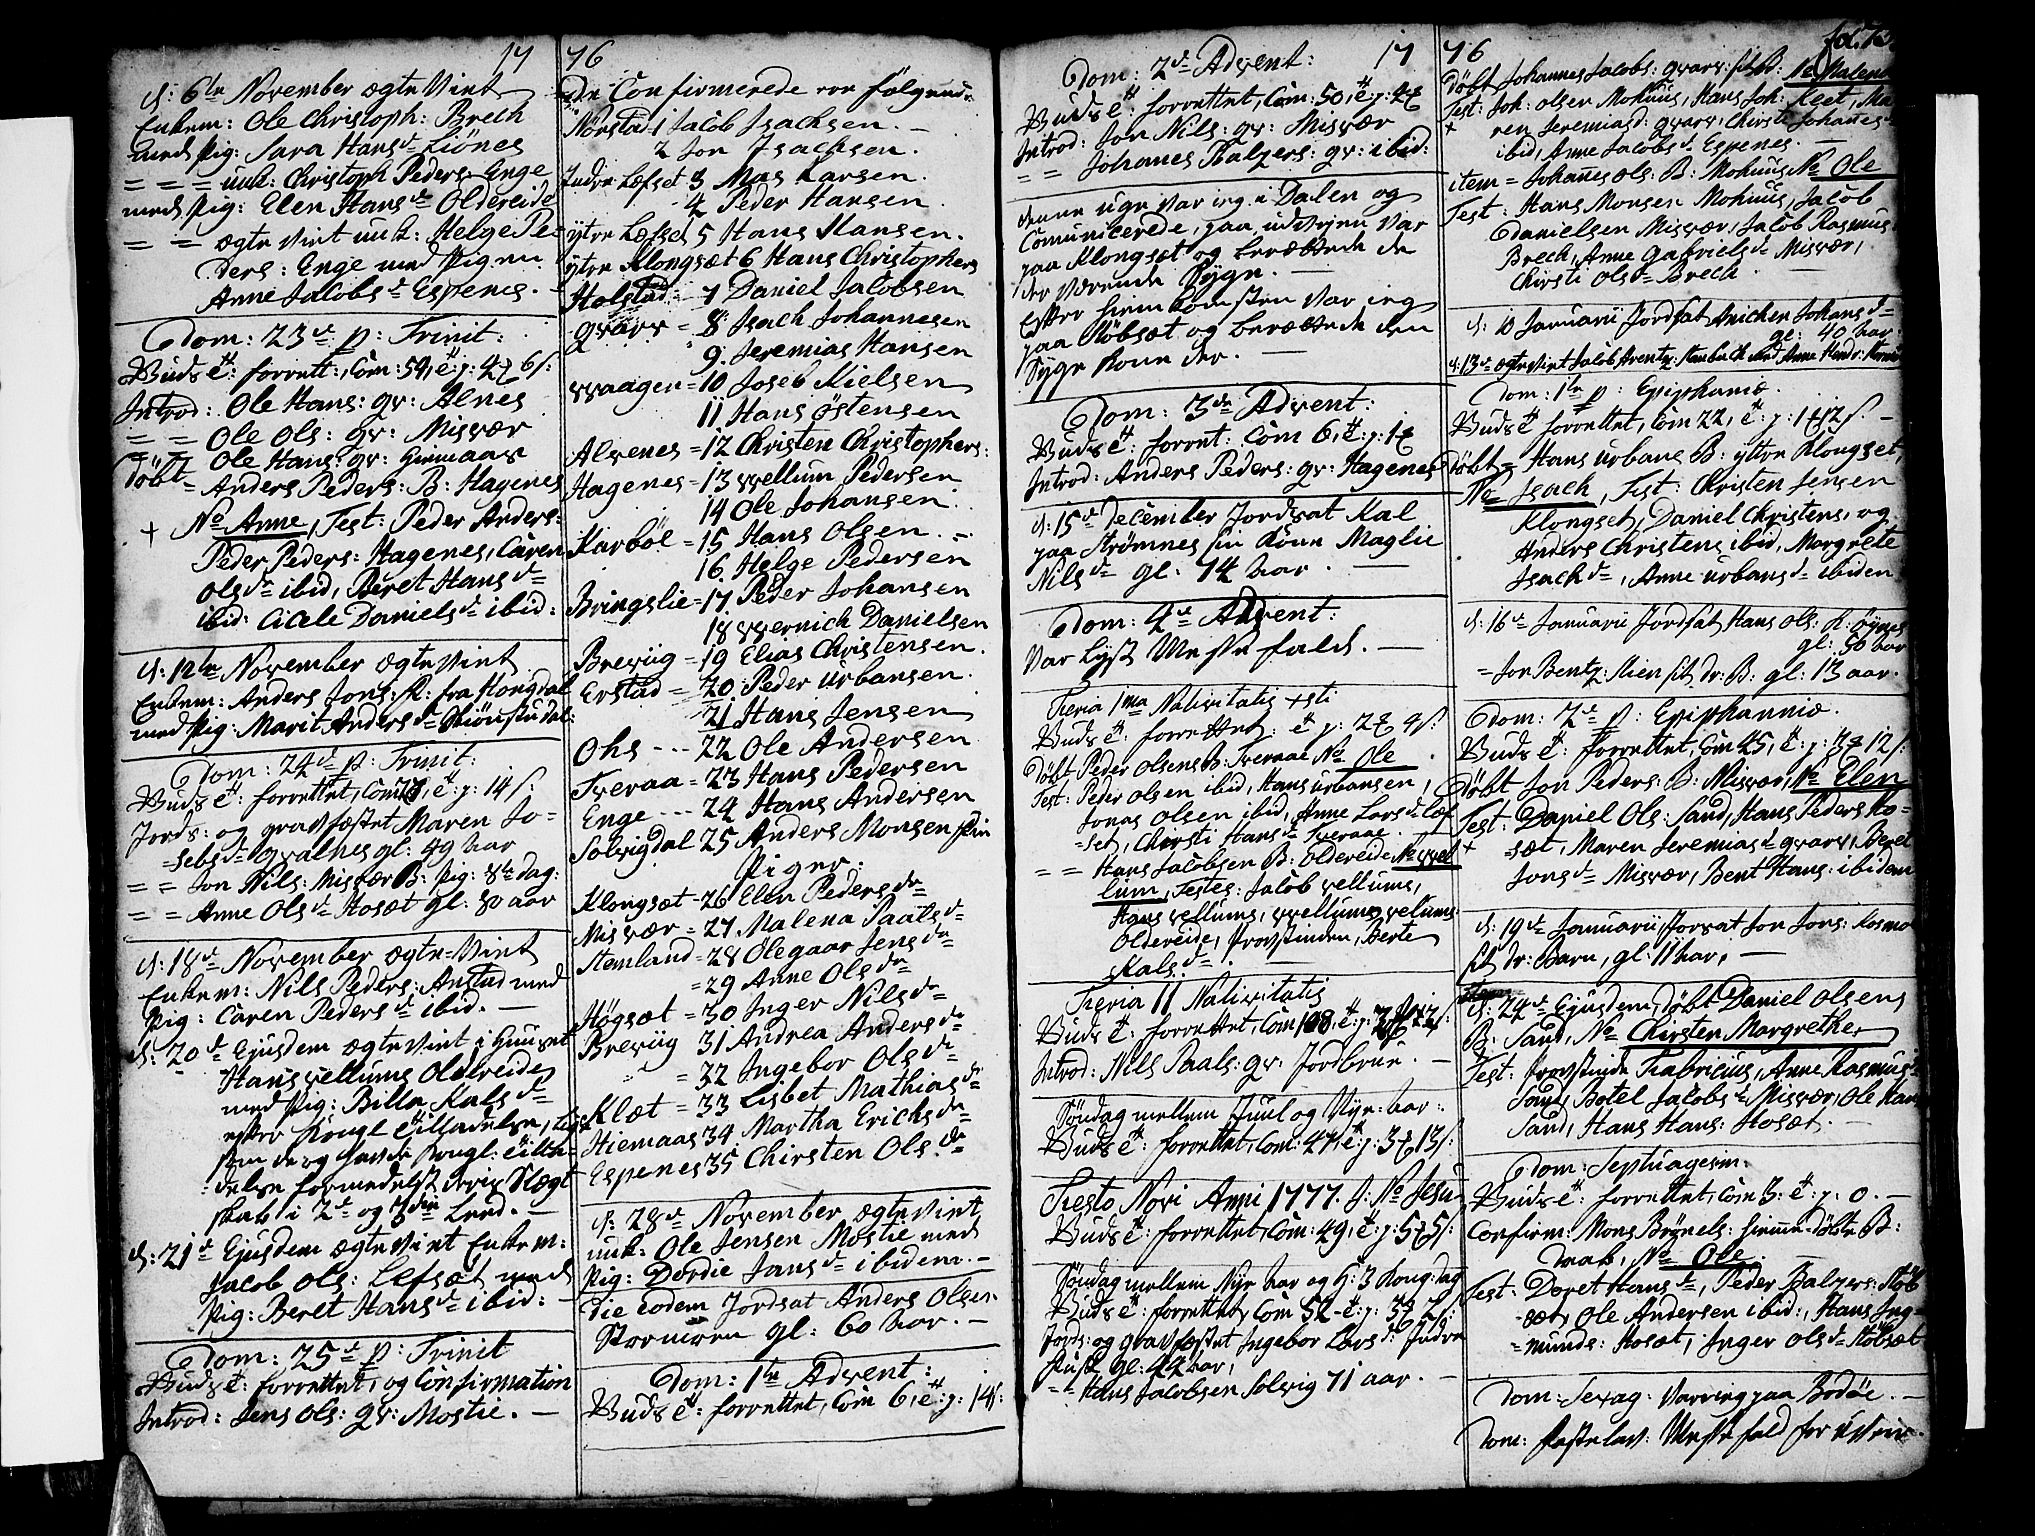 17
d: 6te November ægteviet
Enkem: Ole Christoph: Brech
med Pig: Sara Hansd: Liönes
= = = unk: Christoph Peders: Enge
med Pig: Elen Hansd: Oldereide
= = ægteviet unk: Helge Pe-
ders: Enge med Pigen
Anne Jacobsd: Espenes. -
Dom: 23de p: Trinit:
Ole Hans: gv: Alnes
= = Ole Ols: gv: Misvær
= = Ole Hans: gv:
Döbt = Anders Peders: B: Hagenes
+ No Anne, Test: Peder Anders:
Peder Peders: Hagenes, Caren
Olsd: ibid, Beret Hansd:
ibid: Cicele Danielsd: ibid:
d: 12te November ægteviet
Enkem: Anders Jons: fra
med Pig: Marit Andersd:
Dom: 24de p: Trinit:
Jords: og gravfæstet Maren Jo-
=sebsd: gvalnes gl: 49 aar
= = Jon Nils: Misvær B: Pig: 8te dag:
= = Anne Olsd: Hosæt gl: 80 aar
d: 18de November ægte-viet
Enkem: Nils Peders: Anstad med
Pig: Caren Pedersd: ibid. -
d: 20de Ejusdem ægteviet i Huuset
Hans vellums Oldereide
med Pig: Billa Kalsd:
skab i 2de og 3die Leed. -
d: 21de Ejusdem ægteviet Enkem:
Jacob Ols: Lefsæt med
Pig: Beret Hansd: ibid:
Dom: 25de p: Trinit
Guds t: forrettet, og Confirmation
Introd: Jens Ols: gv: Mostie. -
76
De Confirmerede var følgende
Nörstad 1 Jacob Isachsen. -
2 Jon Isachsen.
Indre Lefset 3 Mas Larsen.
4 Peder Hansen.
ytre Lefset 5 Hans Hansen.
ytre Klongsæt 6 Hans Christophers
Halstad = 7 Daniel Jacobsen
gvarv = 8 Isach Johannesen
9. Jeremias Hansen
vvaagen = 10 Joseb Nielsen
11 Hans Östensen
Alvenes = 12 Christen Christophers:
Hagenes = 13 vvellum Pedersen
14 Ole Johansen
Karböl = 15 Hans Olsen. -
16 Helge Pedersen
Bringslie = 17 Peder Johansen
18 vvernich Danielsen
Breviig = 19 Elias Christensen.
Erstad = 20 Peder Urbansen.
21 Hans Jensen
Ohs --- 22 Ole Andersen
Tveraa = 23 Hans Pedersen
Enge --- 24 Hans Andersen
Solvigdal 25 Anders Monsen
Piger:
Klongsæt = 26 Elen Pedersdr
Misvær = 27 Malena Paalsd:
Stemland = 28 Olegaar Jensdr
= 29 Anne Olsdr
Högsæt = 30 Inger Nilsd:
Breviig 31 Andrea Andersd:
= 32 Ingebor Olsd:
Klæt = 33 Lisbet Mathiasd:
Hiemaas 34 Martha Erichsdr
Espenes 35 Chirsten Olsdr
d: 28de November ægteviet
unk: Ole Jensen Mostie med
Pig: Dordie Jansd: ibidem. -
Die eodem Jordsat Anders Olsen
Stormoen gl: 60 aar. -
Dom: 1te Advent:
Guds t: forrettet, Com 6, t: p: 14 s:
17
Dom: 2de Advent:
Guds t: forrettet, Com: 50,
Introd: Jon Nils: gv: Misvær
= = Johanes Balzers: gv: ibid:
denne uge var jeg i Dalen og
Comunicerede, paa udveien var
paa Klongsæt og berættede de
der værende Syge. -
Efter hiemkomsten var jeg
paa Stöbsæt og berættede den
Syge Kone der. -
Dom: 3de Advent:
Guds t: forret: Com 6, t: p:
Introd: Anders Peders: gv: Hagenes
d: 15de December Jordsat Kal
paa Strömnes sin Kone Maglie
Nilsd: gl: 74 aar. -
Dom: 4de Advent:
var lyst Messefald. -
Feria 1ma Nativitatis xsti
Döbt Peder Olsens B: Tveraae No Ole
Test: Peder Olsen ibid, Hans urbansen,
Jonas Olsen ibid, Anne Larsd: Lef
=set, Chirsti Hansd: Tveraae.
= = Hans Jacobsen B: Oldereide No vvel
lum, Testes: Jacob vellums,
Hans vellums, vvellums velums:
Oldereide, Provstinden, Berte
Kalsd: -
Feria II Nativitatis
Introd: Nils Paals: gv: Jordbrue. -
Söndag mellem Juul og Nye-aar:
Guds t: forrettet, Com: 47,
Festo Novi Anni 1777. J: No Jesu
Guds t: forrettet, Com: 49,
Söndag mellem Nye aar og H: 3 Kong:dag
Guds t: forrettet, Com 52
Jords: og gravfæstet Ingebor Larsd: Indre
gl: 44 aar,
= = Hans Jacobsen Solvig 71 aar. -
76
Döbt Johannes Jacobs: gvarv: No Malena
Test: Joh: Olsen Mohuus, Hans Joh: Keet, Ma-
ren Jeremiasd: gvarv: Chirsti Johanesd:
ibid, Anne Jacobsd: Espenes. -
item = Johanes Ols: B: Mohuus No Ole
Test: Hans Monsen Mohuus, Jacob
Danielsen Misvær, Jacob Rasmus:
Brech, Anne Gabrielsd: Misvær,
Chirsti Olsd: Brech. -
d: 10 Januarii Jordsat Anichen Johansd:
gl: 40 aar:
Dom: 1te p: Epiphaniæ.
Guds t: forrettet, Com 22,
Döbt = Hans urbans B: yttre Klongset,
No Isach, Test: Christen Jensen
Klongset, Daniel Christens, og
Anders Christens ibid, Margrete
Isachd:, Anne urbansd: ibidem
d: 16de Januarii Jordsat Hans Ols:
gl: 50 aar
= Jon Bentz: dr: B: gl: 13 aar.
Dom: 2de p: Epiphanniæ.
Guds t: forrettet, Com 45,
Döbt Jon Peders: B: Misvær, No Elen
Test: Daniel Ols: Sand, Hans Peders Ho-
=sæt, Maren Jeremiasd: gvarv, Beret
Jonsd: Misvær, Bent Hans: ibidem
d: 19de Januarii Jorsat Jon Jons: Kosmo
sit dr: Barn, gl: 11 aar, -
d: 24de Ejusdem, döbt Daniel Olsens
B: Sand, No Chirsten Margrethe,
Test: Provstinde Fabricius, Anne Rasmusd:
Sand, Botel Jacobsd: Misvær, Ole Hans
Sand, Hans Hans: Hosæt. -
Dom: Septuagesim:
Guds t: forrettet, Com 3: t: p: 0. -
Confirm: Mons Brönels: hiemme döbte B:
No Ole.
Test: Doret Hansd:, Peder Balzers: Stöb
sæt, Ole Andersen ibid:, Hans Ing-
=munds: Hosæt, Inger Olsd: Stöbsæt
Dom: Sexag: var jeg paa Bodöe. -
Dom: Fastelav: Messefald for